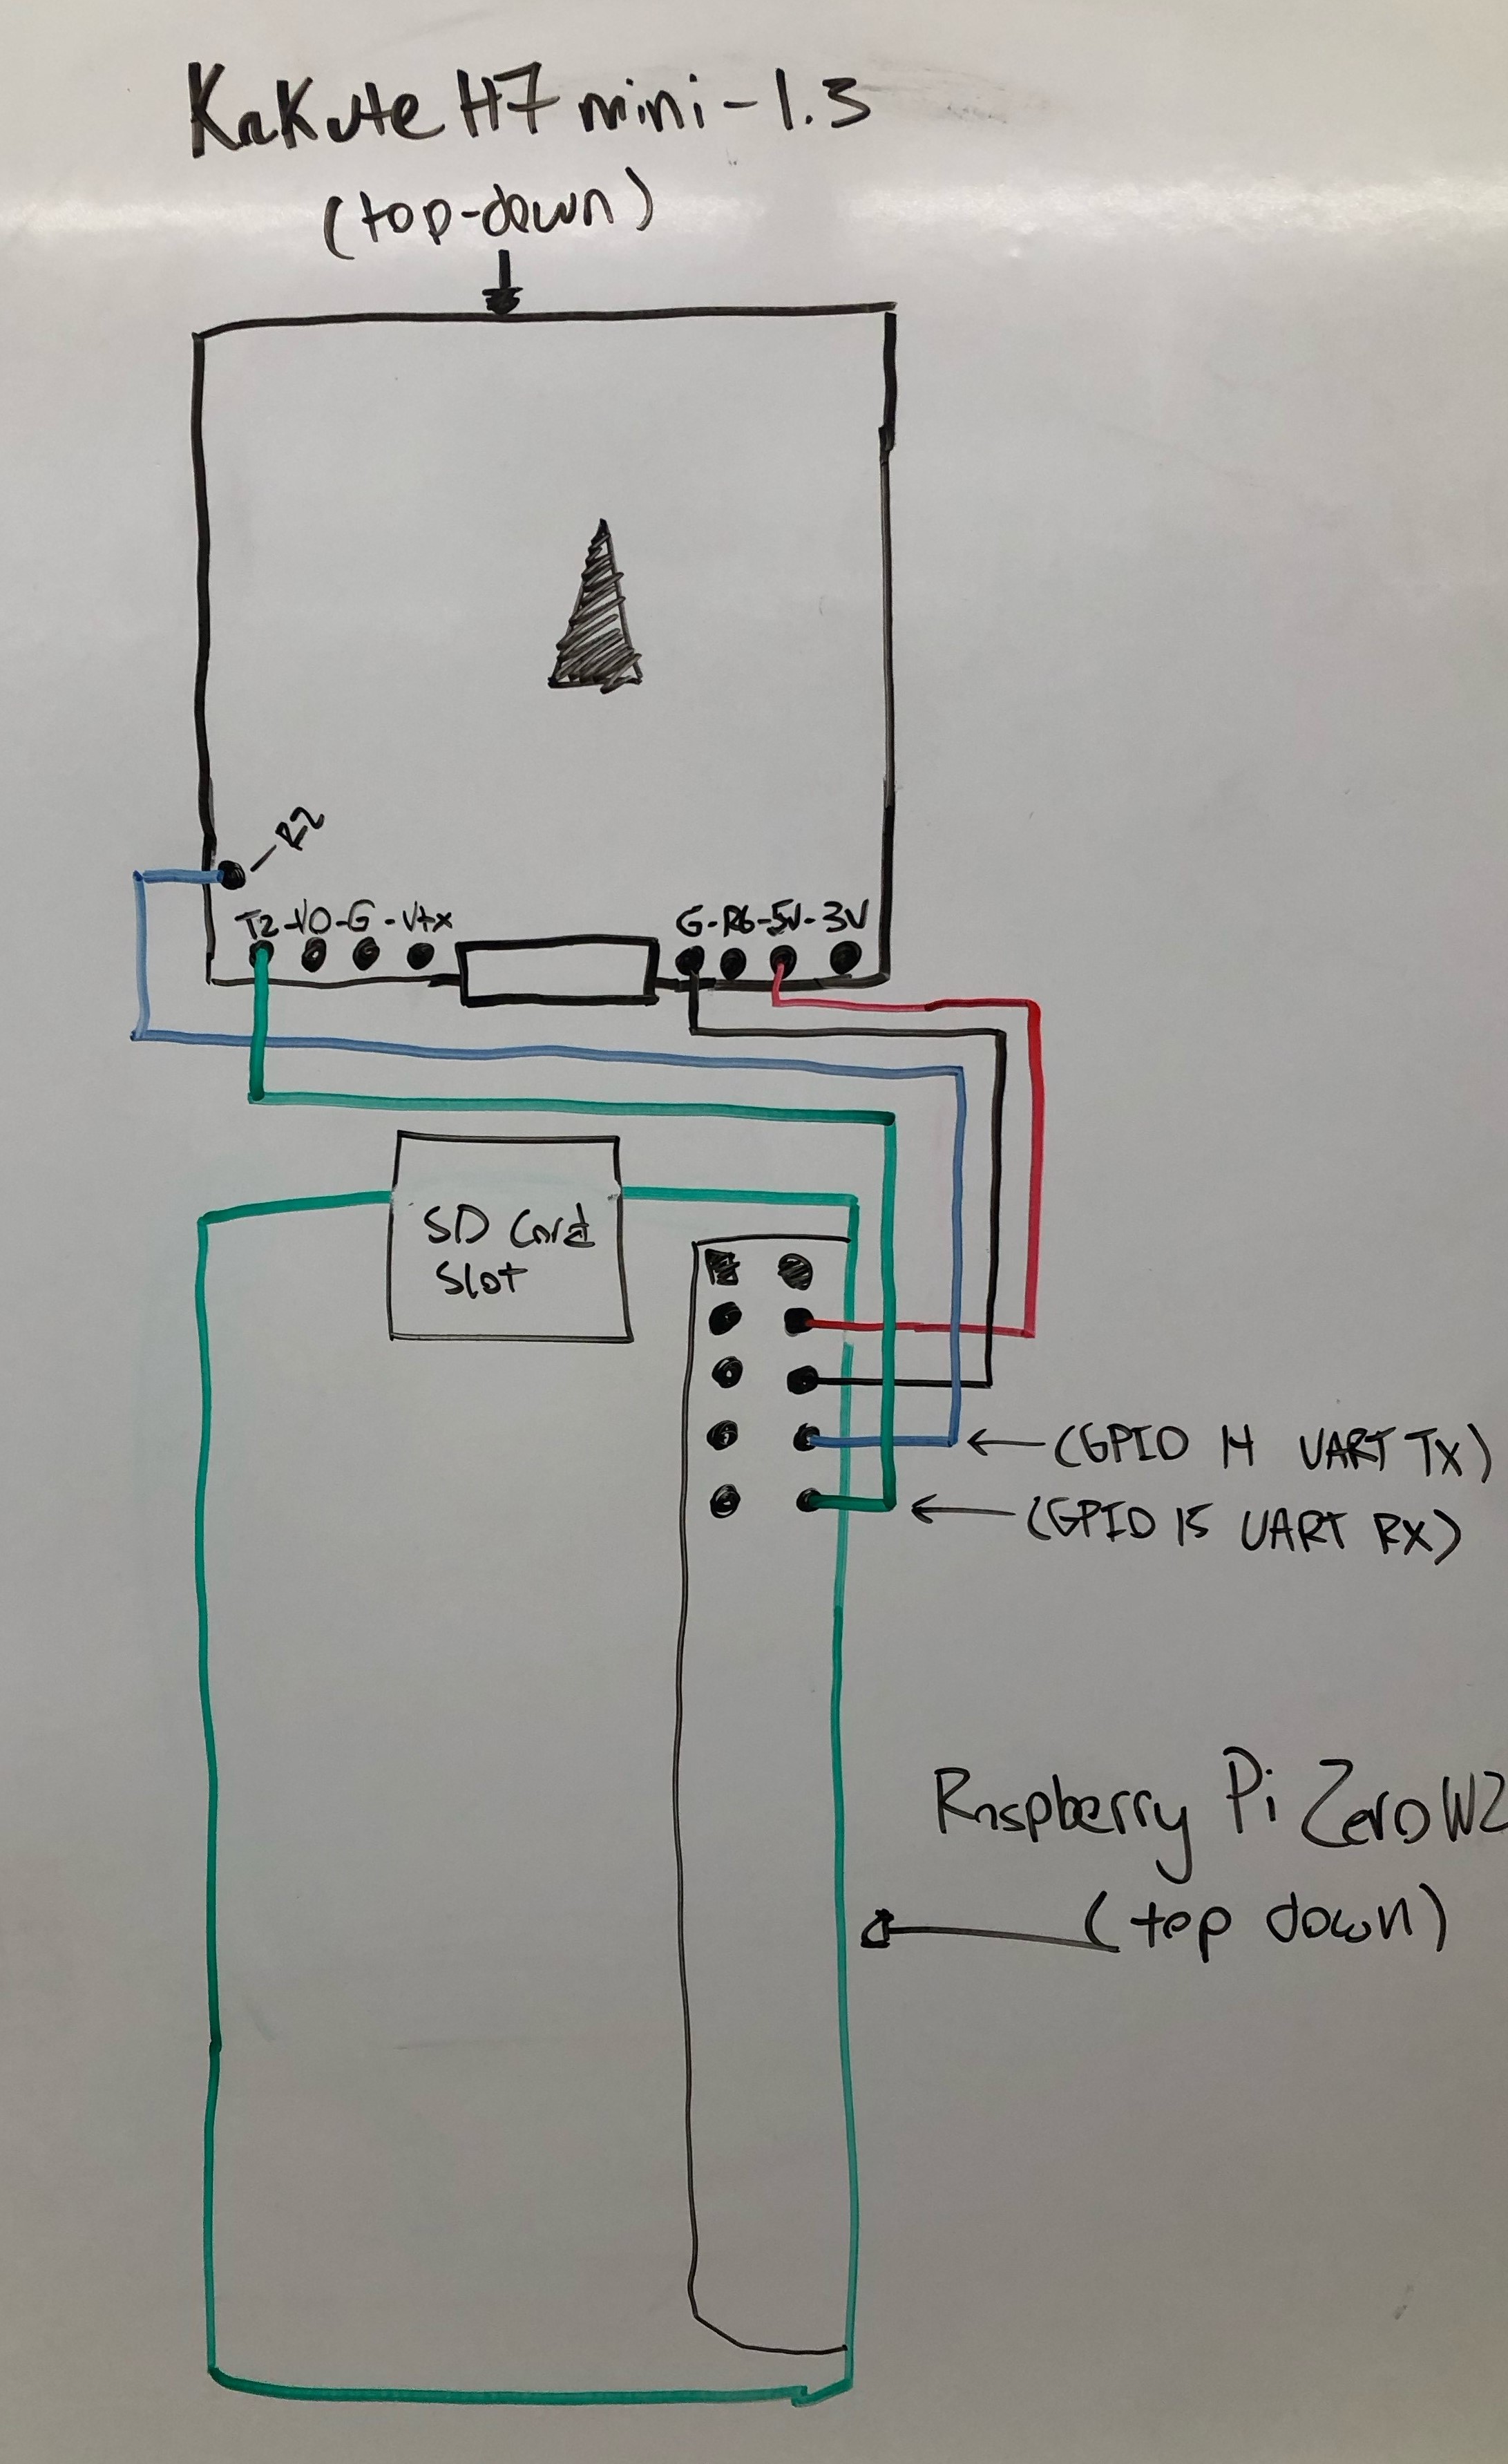 Kakute H7 mini-1.3
(top-down)
R2
T2-VO-G-Vtx
G-R6-5V-3V
SD Card
Slot
(GPIO 14 UART TX)
(GPIO 15 UART RX)
Raspberry Pi Zero W2
(top down)